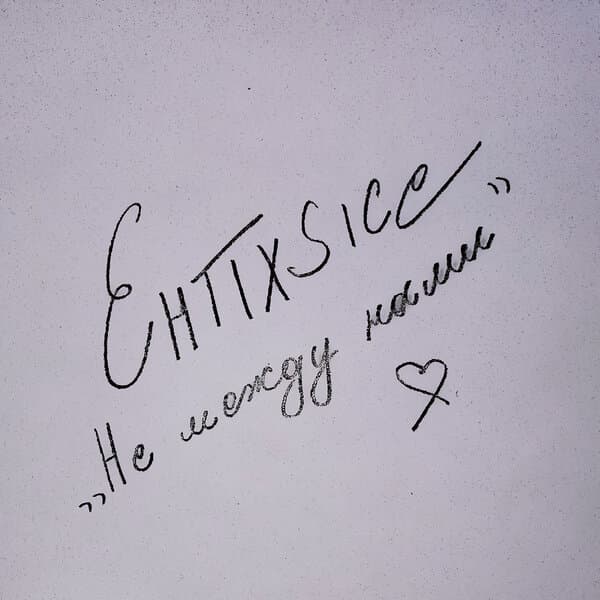 EHTIXSICE
„Не между нами”